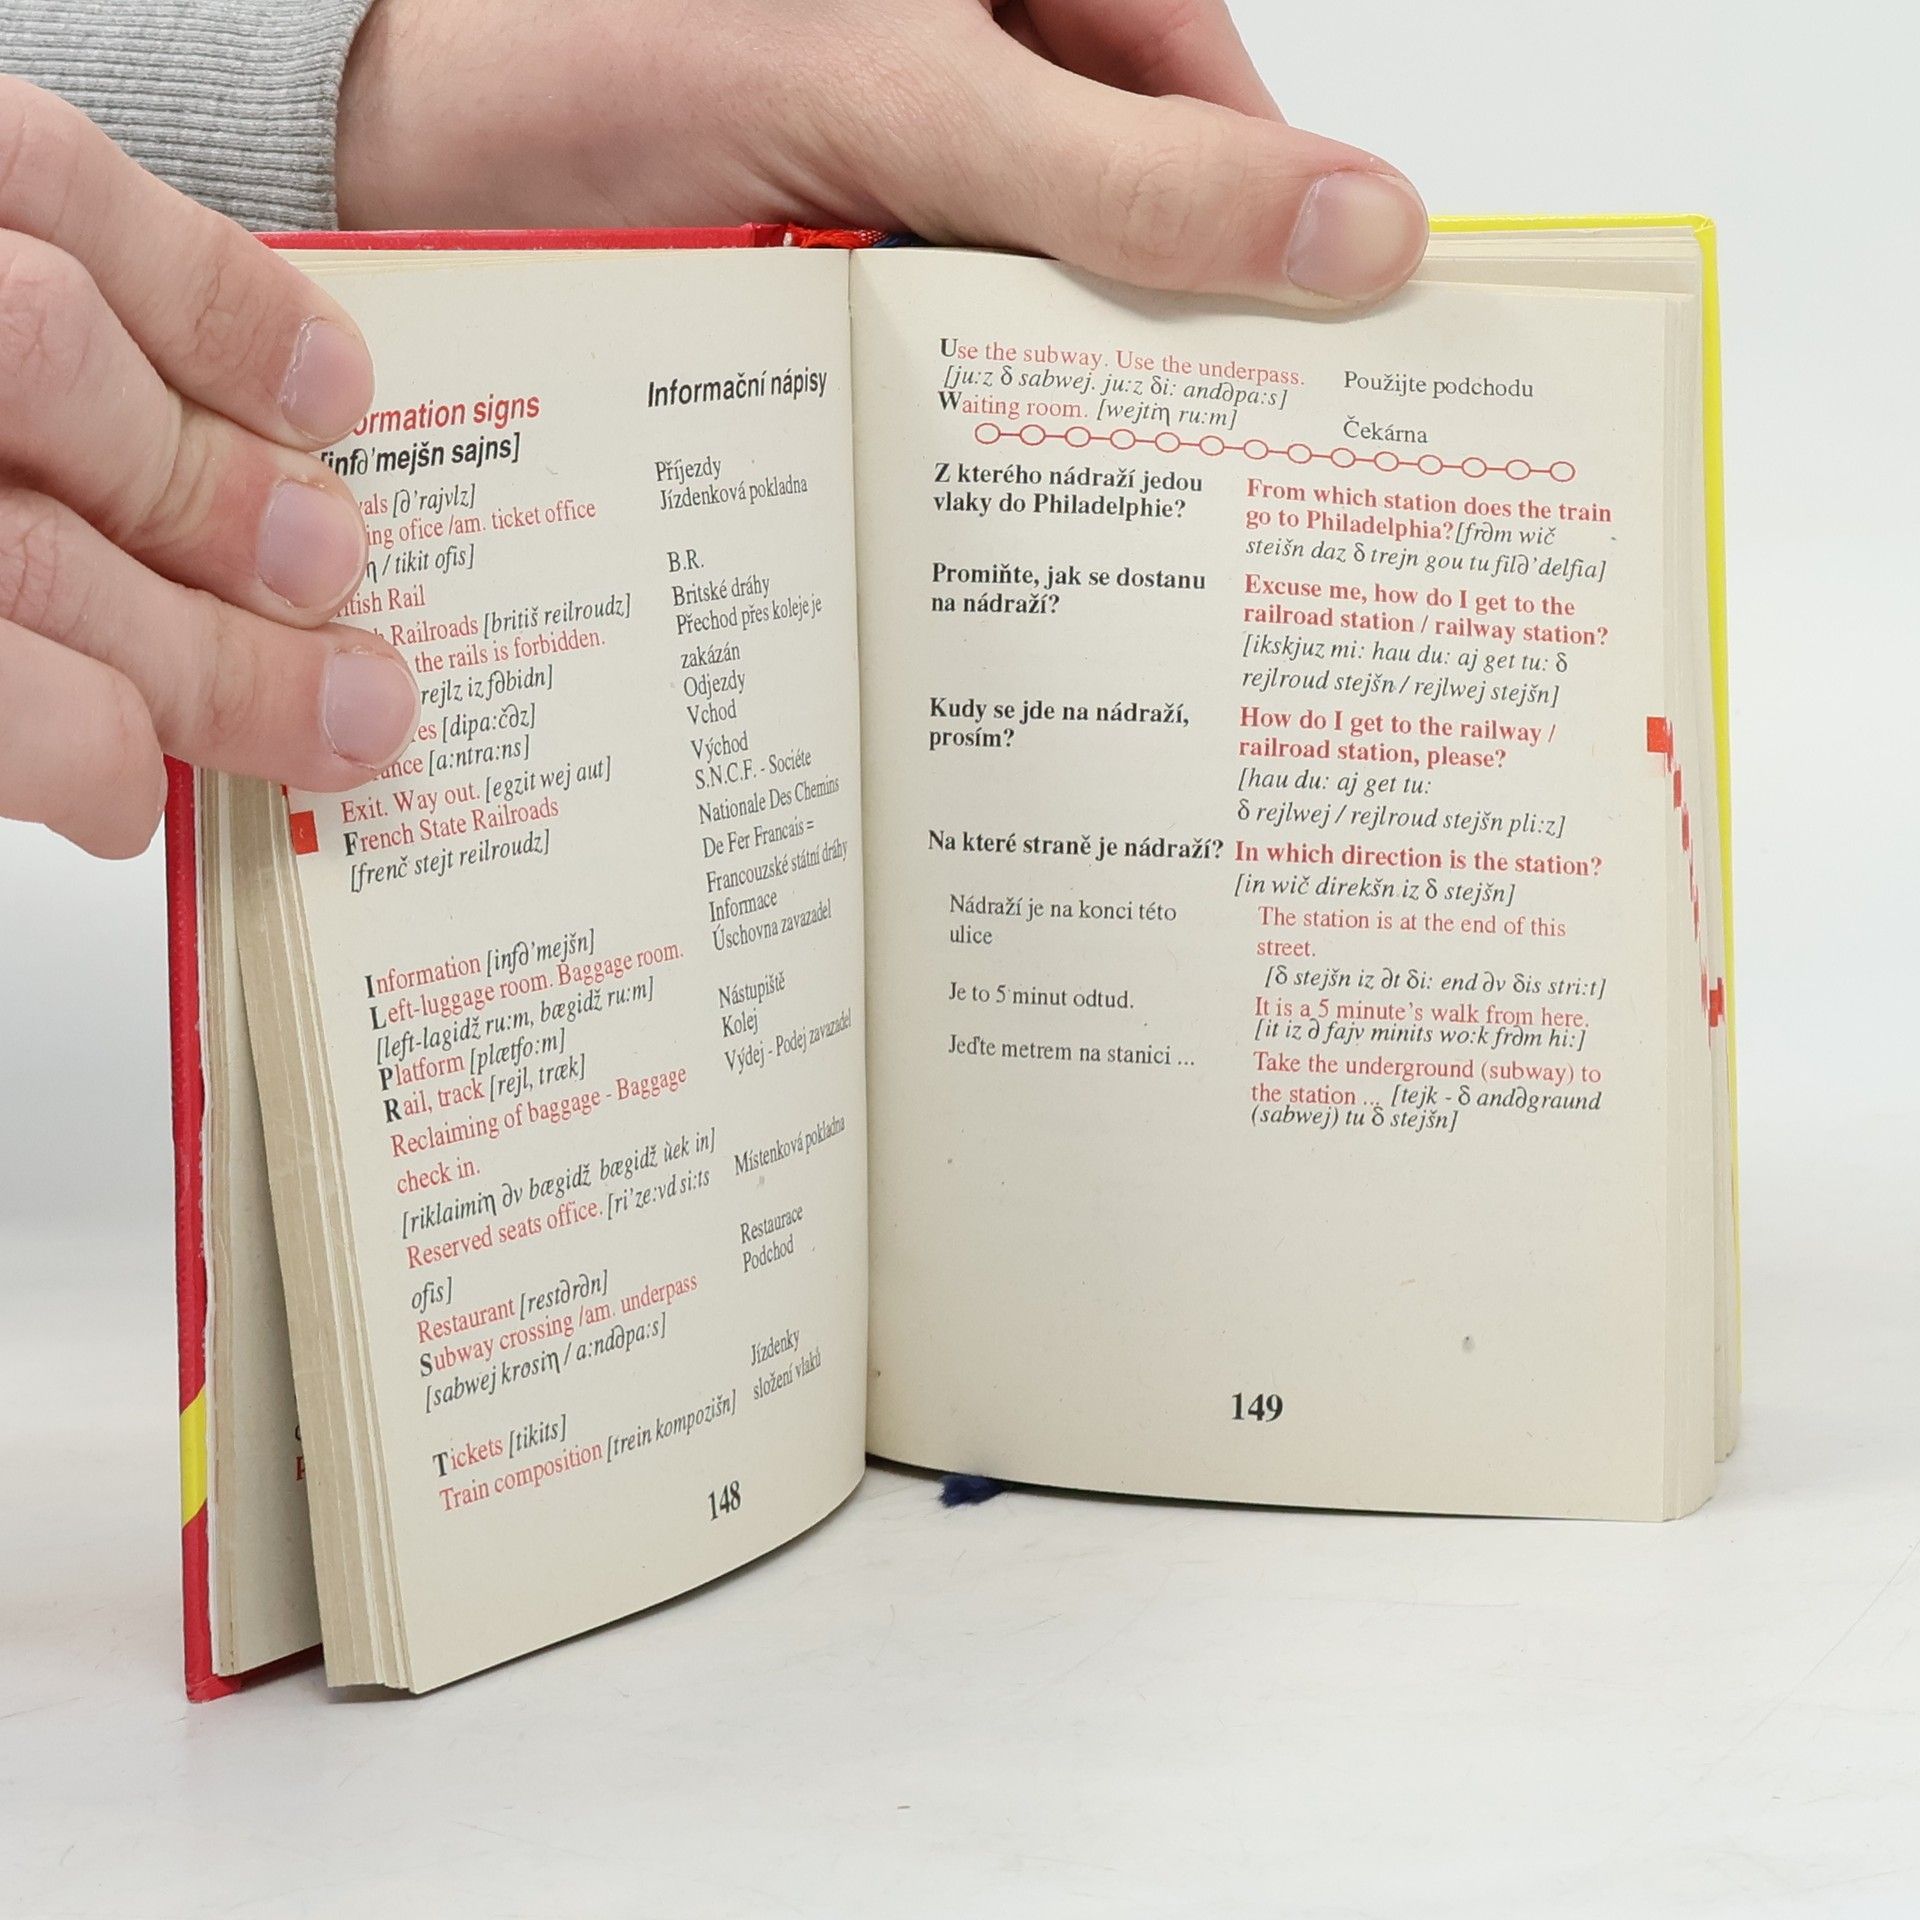 ormation signs
Informační nápisy
[infə'mejšn sajns]
vals [ə'rajvlz]
Příjezdy
ing ofice /am. ticket office
Jízdenková pokladna
η / tikit ofis]
tish Rail
B.R.
Railroads [britiš reilroudz]
Britské dráhy
the rails is forbidden.
Přechod přes koleje je
rejlz iz fəbidn]
zakázán
es [dipa:čəz]
Odjezdy
ance [a:ntra:ns]
Vchod
Exit. Way out. [egzit wej aut]
Východ
French State Railroads
S.N.C.F. - Sociéte
[frenč stejt reilroudz]
Nationale Des Chemins
De Fer Francais =
Francouzské státní dráhy
Information [infə'mejšn]
Informace
Left-luggage room. Baggage room.
Úschovna zavazadel
[left-lagidž ru:m, bægidž ru:m]
Platform [plætfo:m]
Nástupiště
Rail, track [rejl, træk]
Kolej
Reclaiming of baggage - Baggage
Výdej - Podej zavazadel
check in.
[riklaimiη əv bægidž bægidž ùek in]
Reserved seats office. [ri'ze:vd si:ts
Místenková pokladna
ofis]
Restaurant [restərən]
Restaurace
Subway crossing /am. underpass
Podchod
[sabwej krosiη / a:ndəpa:s]
Tickets [tikits]
Jízdenky
Train composition [trein kompozišn]
složení vlaků
148
Use the subway. Use the underpass.
[ju:z δ sabwej. ju:z δi: andəpa:s]
Použijte podchodu
Waiting room. [wejtiη ru:m]
Čekárna
Z kterého nádraží jedou
vlaky do Philadelphie?
From which station does the train
go to Philadelphia?[frəm wič
steišn daz δ trejn gou tu filə'delfia]
Promiňte, jak se dostanu
na nádraží?
Excuse me, how do I get to the
railroad station / railway station?
[ikskjuz mi: hau du: aj get tu: δ
rejlroud stejšn / rejlwej stejšn]
Kudy se jde na nádraží,
prosím?
How do I get to the railway /
railroad station, please?
[hau du: aj get tu:
δ rejlwej / rejlroud stejšn pli:z]
Na které straně je nádraží?
In which direction is the station?
[in wič direkšn iz δ stejšn]
Nádraží je na konci této
ulice
The station is at the end of this
street.
[δ stejšn iz ət δi: end əv δis stri:t]
Je to 5 minut odtud.
It is a 5 minute's walk from here.
[it iz ə fajv minits wo:k frəm hi:]
Jeďte metrem na stanici ...
Take the underground (subway) to
the station ... [tejk - δ andəgraund
(sabwej) tu δ stejšn]
149